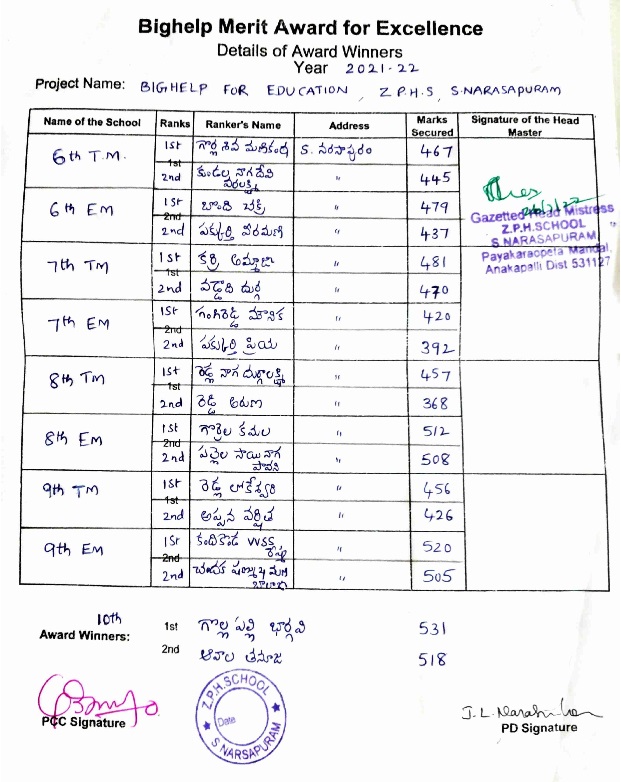 Bighelp Merit Award for Excellence
Details of Award Winners
Year 2021-22
Project Name: BIGHELP FOR EDUCATION, Z.P.H.S, S.NARASAPURAM
Name of the School Ranks Ranker's Name Address Marks Secured Signature of the Head Master
6th T.M. 1st గొర్ల శివ మణికంఠ S. నరసాపురం 467
1st
2nd కుండల నాగదేవి వరలక్ష్మి " 445
6th EM 1st " 479
2nd
2nd వీరమణి " 437
Gazetted Head Mistress
Z.P.H.SCHOOL
S NARASAPURAM,
Payakaraopeta Mandal,
Anakapalli Dist 531127
7th TM 1st కర్రి " 481
1st
2nd వడ్డాది దుర్గ " 470
7th EM 1st గంగిరెడ్డి మౌనిక " 420
2nd
2nd ప్రియ " 392
8th TM 1st రెడ్ల నాగ దుర్గాలక్ష్మి " 457
1st
2nd రెడ్డి అరుణ " 368
8th EM 1st గొర్రెల కమల " 512
2nd
2nd పల్లెల సాయి నాగ పావని " 508
9th TM 1st రెడ్ల లోకేశ్వరి " 456
1st
2nd అప్పన వర్షిత " 426
9th EM 1st కందికొండ VVSS " 520
2nd
2nd చందక " 505
10th
Award Winners: 1st గొల్లపల్లి భార్గవి 531
2nd ఆవాల తనూజ 518
PCC Signature
Z.P.H.SCHOOL
Date
S NARSAPURAM
PD Signature